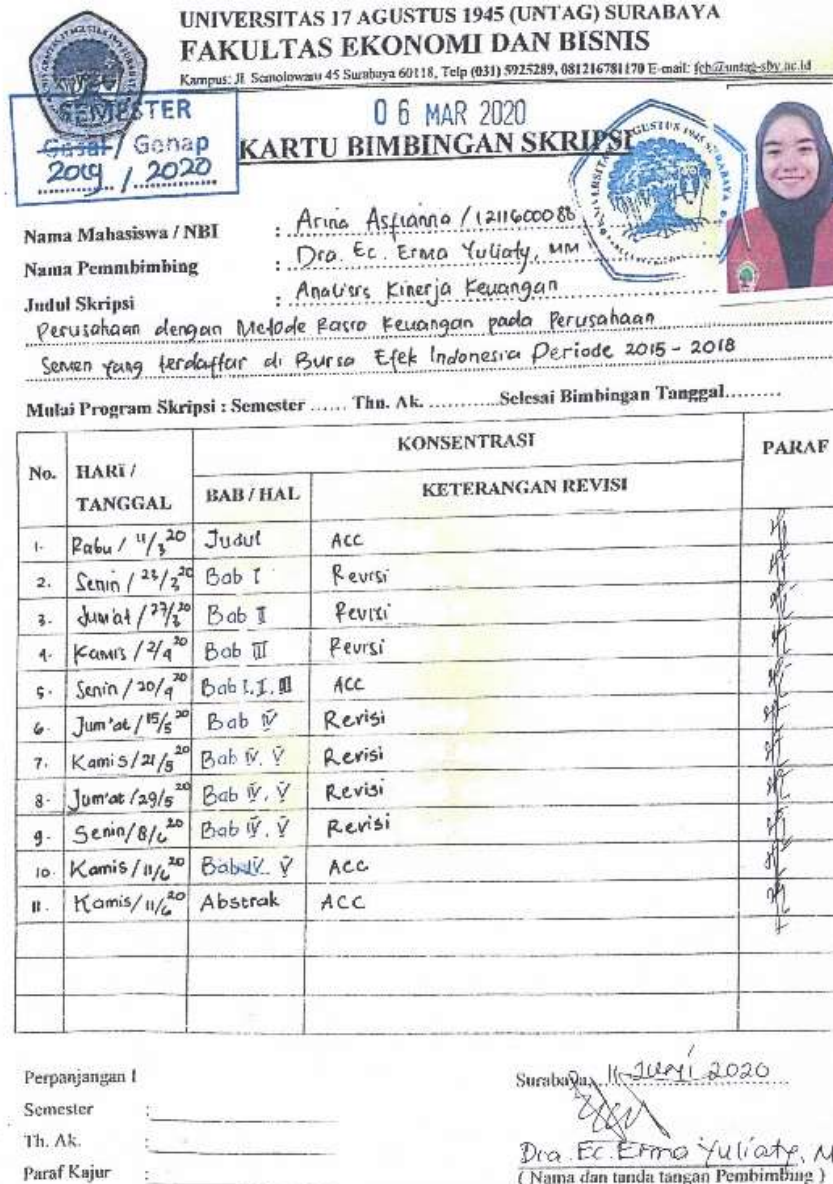 UNIVERSITAS 17 AGUSTUS 1945 (UNTAG) SURABAYA
FAKULTAS EKONOMI DAN BISNIS
Kampus: Jl. Semolowaru 45 Surabaya 60118, Telp (031) 5925289, 081216781170 E-mail: feb@untag-sby.ac.id
SEMESTER
Gasal / Genap
2019 / 2020
06 MAR 2020
KARTU BIMBINGAN SKRIPSI
Nama Mahasiswa / NBI : Arina Asfianna / 1211600088
Nama Pemmbimbing : Dra. Ec. Erma Yuliaty, MM
Judul Skripsi : Analisis Kinerja Keuangan
Perusahaan dengan Metode Rasio Keuangan pada Perusahaan
Semen yang terdaftar di Bursa Efek Indonesia Periode 2015 - 2018
Mulai Program Skripsi : Semester ...... Thn. Ak. ...........Selesai Bimbingan Tanggal.........
No. HARI / TANGGAL KONSENTRASI PARAF
BAB / HAL KETERANGAN REVISI
1. Rabu / 11/3 20 Judul ACC
2. Senin / 23/3 20 Bab I Revisi
3. Jum'at / 27/3 20 Bab II Revisi
4. Kamis / 2/4 20 Bab III Revisi
5. Senin / 20/4 20 Bab I, I, III ACC
6. Jum'at / 15/5 20 Bab IV Revisi
7. Kamis / 21/5 20 Bab IV, V Revisi
8. Jum'at / 29/5 20 Bab IV, V Revisi
9. Senin / 8/6 20 Bab IV, V Revisi
10. Kamis / 11/6 20 Bab IV, V ACC
11. Kamis / 11/6 20 Abstrak ACC
Perpanjangan I
Semester :
Th. Ak. :
Paraf Kajur :
Surabaya, 11 Juni 2020
Dra. Ec. Erma Yuliaty, M
( Nama dan tanda tangan Pembimbing )